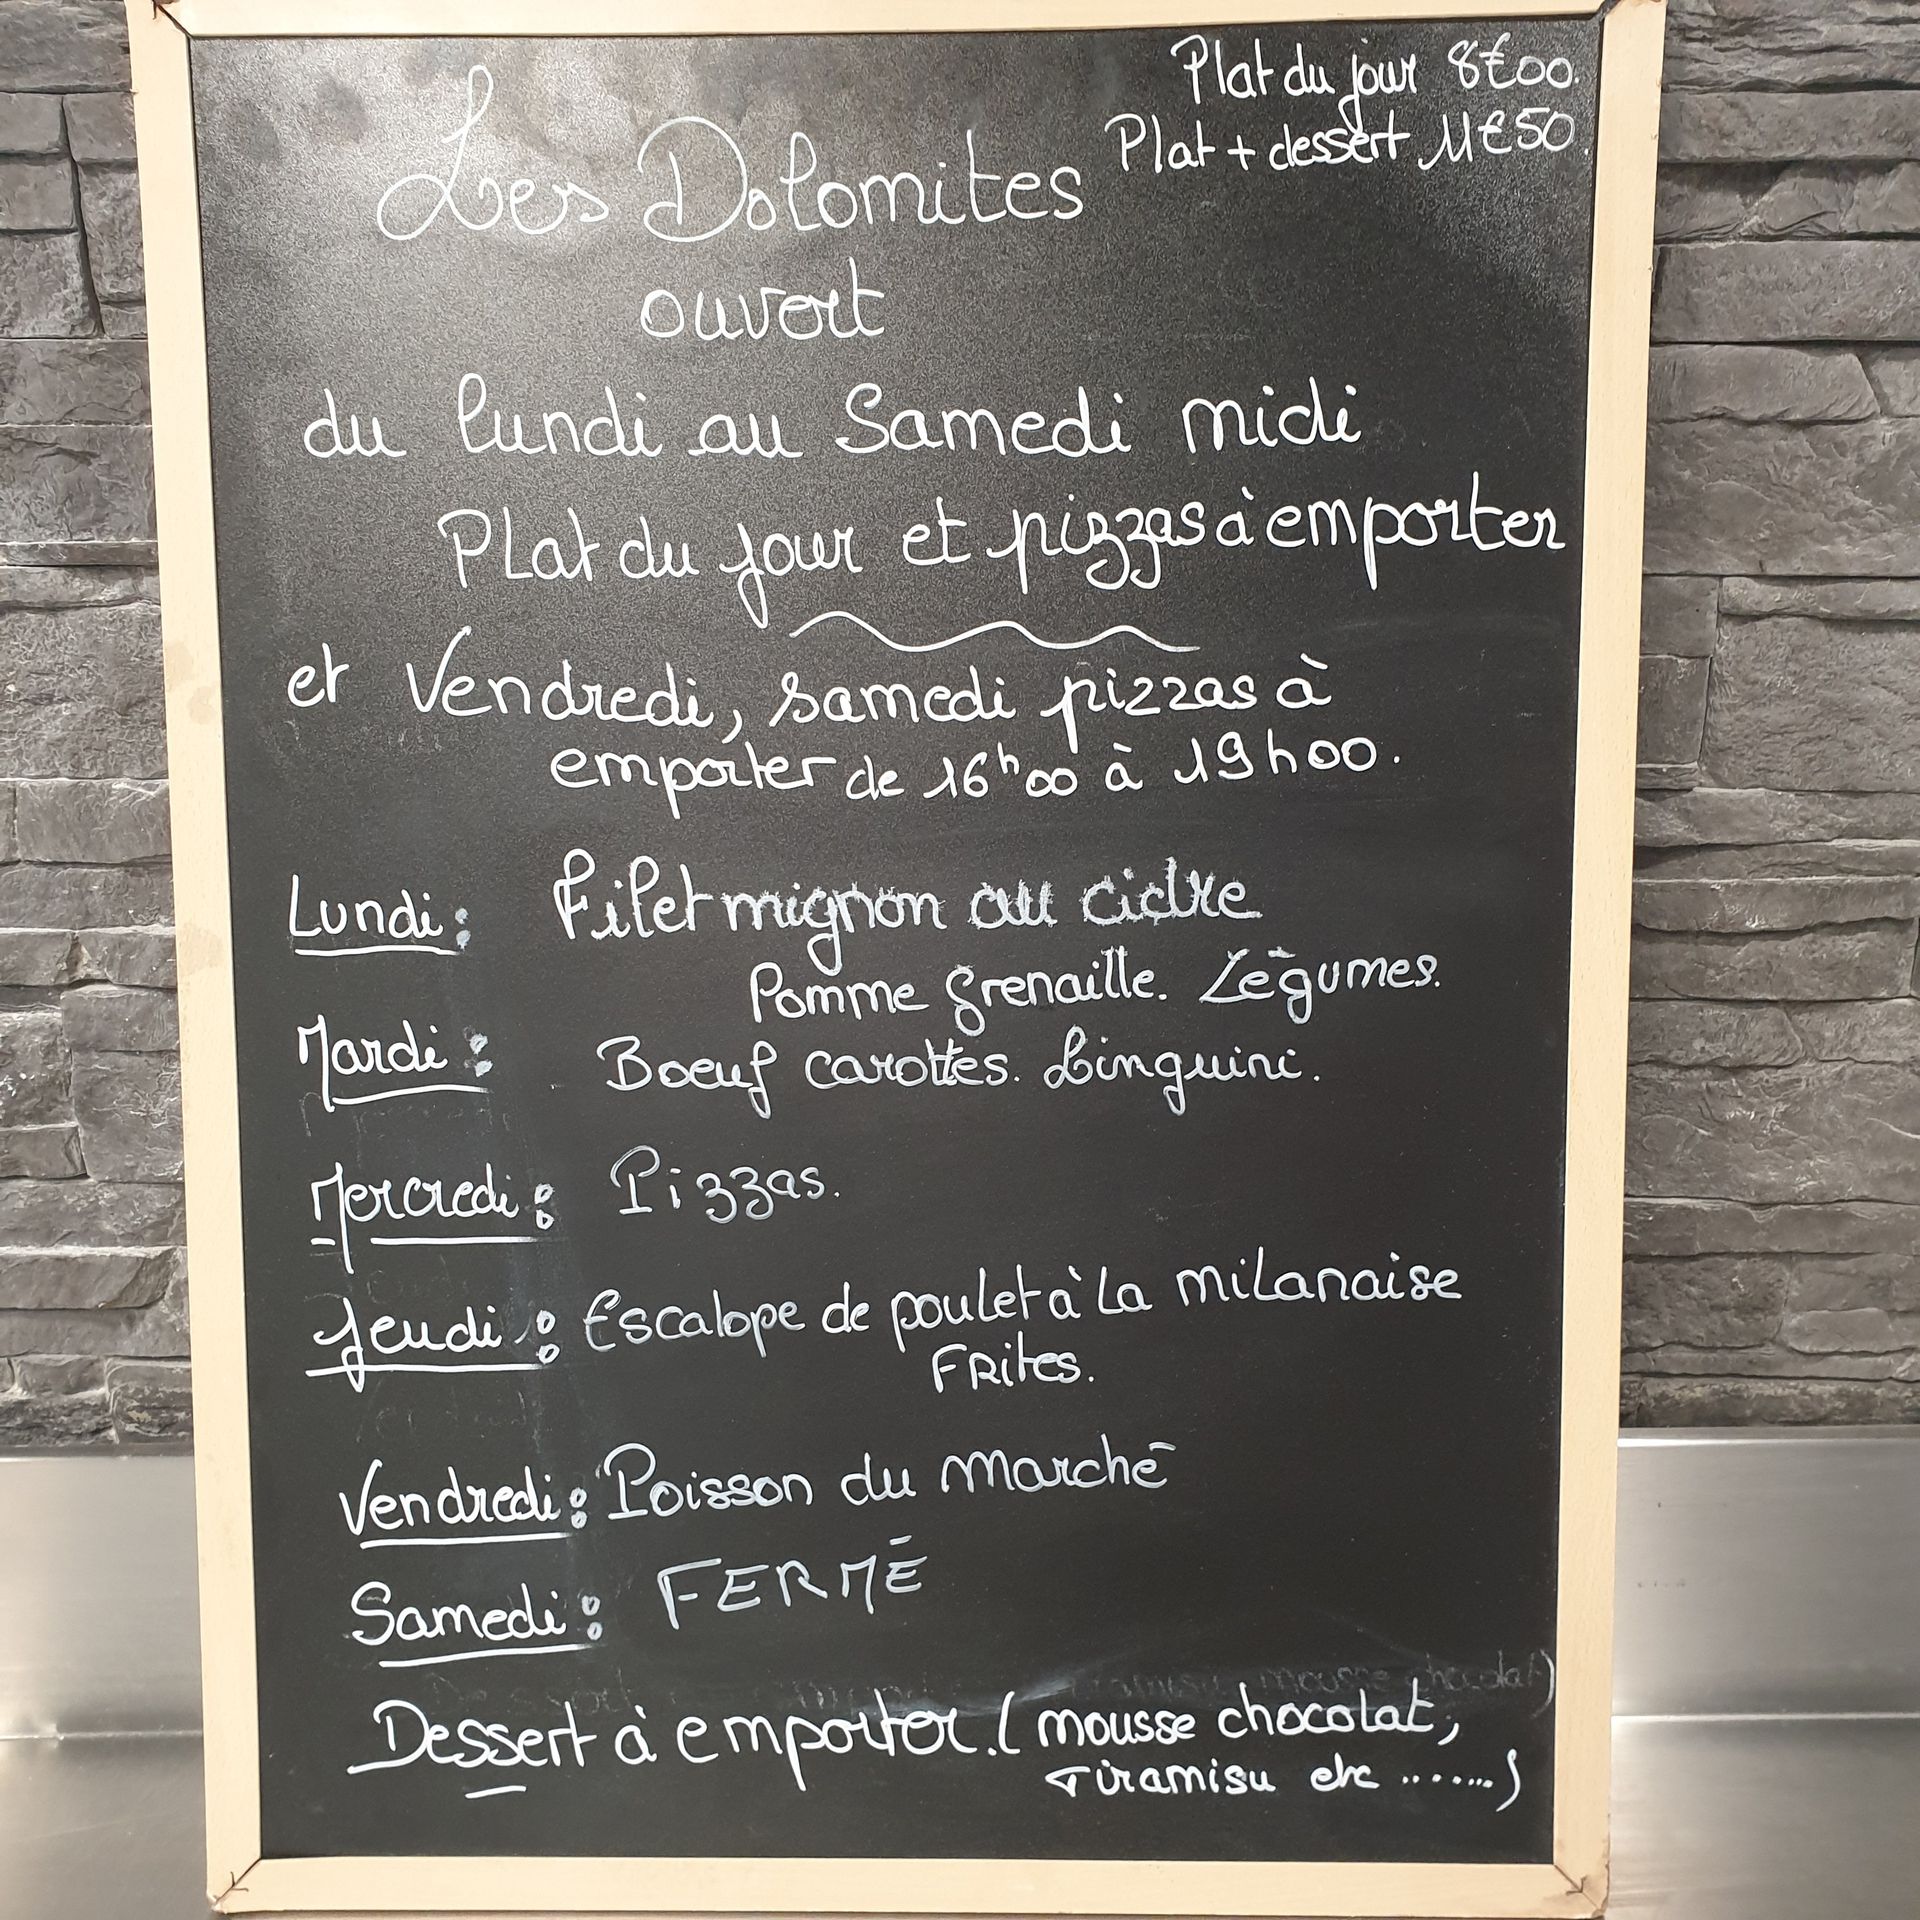 Plat du jour 8€00.
Plat + dessert 11€50.
Les Dolomites
ouvert
du lundi au Samedi midi
Plat du jour et pizzas à emporter
et Vendredi, samedi pizzas à
emporter de 16h00 à 19h00.
Lundi : Filet mignon au cidre
Pomme grenaille. Légumes.
Mardi : Boeuf carottes. Linguini.
Mercredi : Pizzas.
Jeudi : Escalope de poulet à la milanaise
Frites.
Vendredi : Poisson du marché
Samedi : FERMÉ
mousse chocolat)
Dessert à emporter. (mousse chocolat,
Tiramisu etc .......)